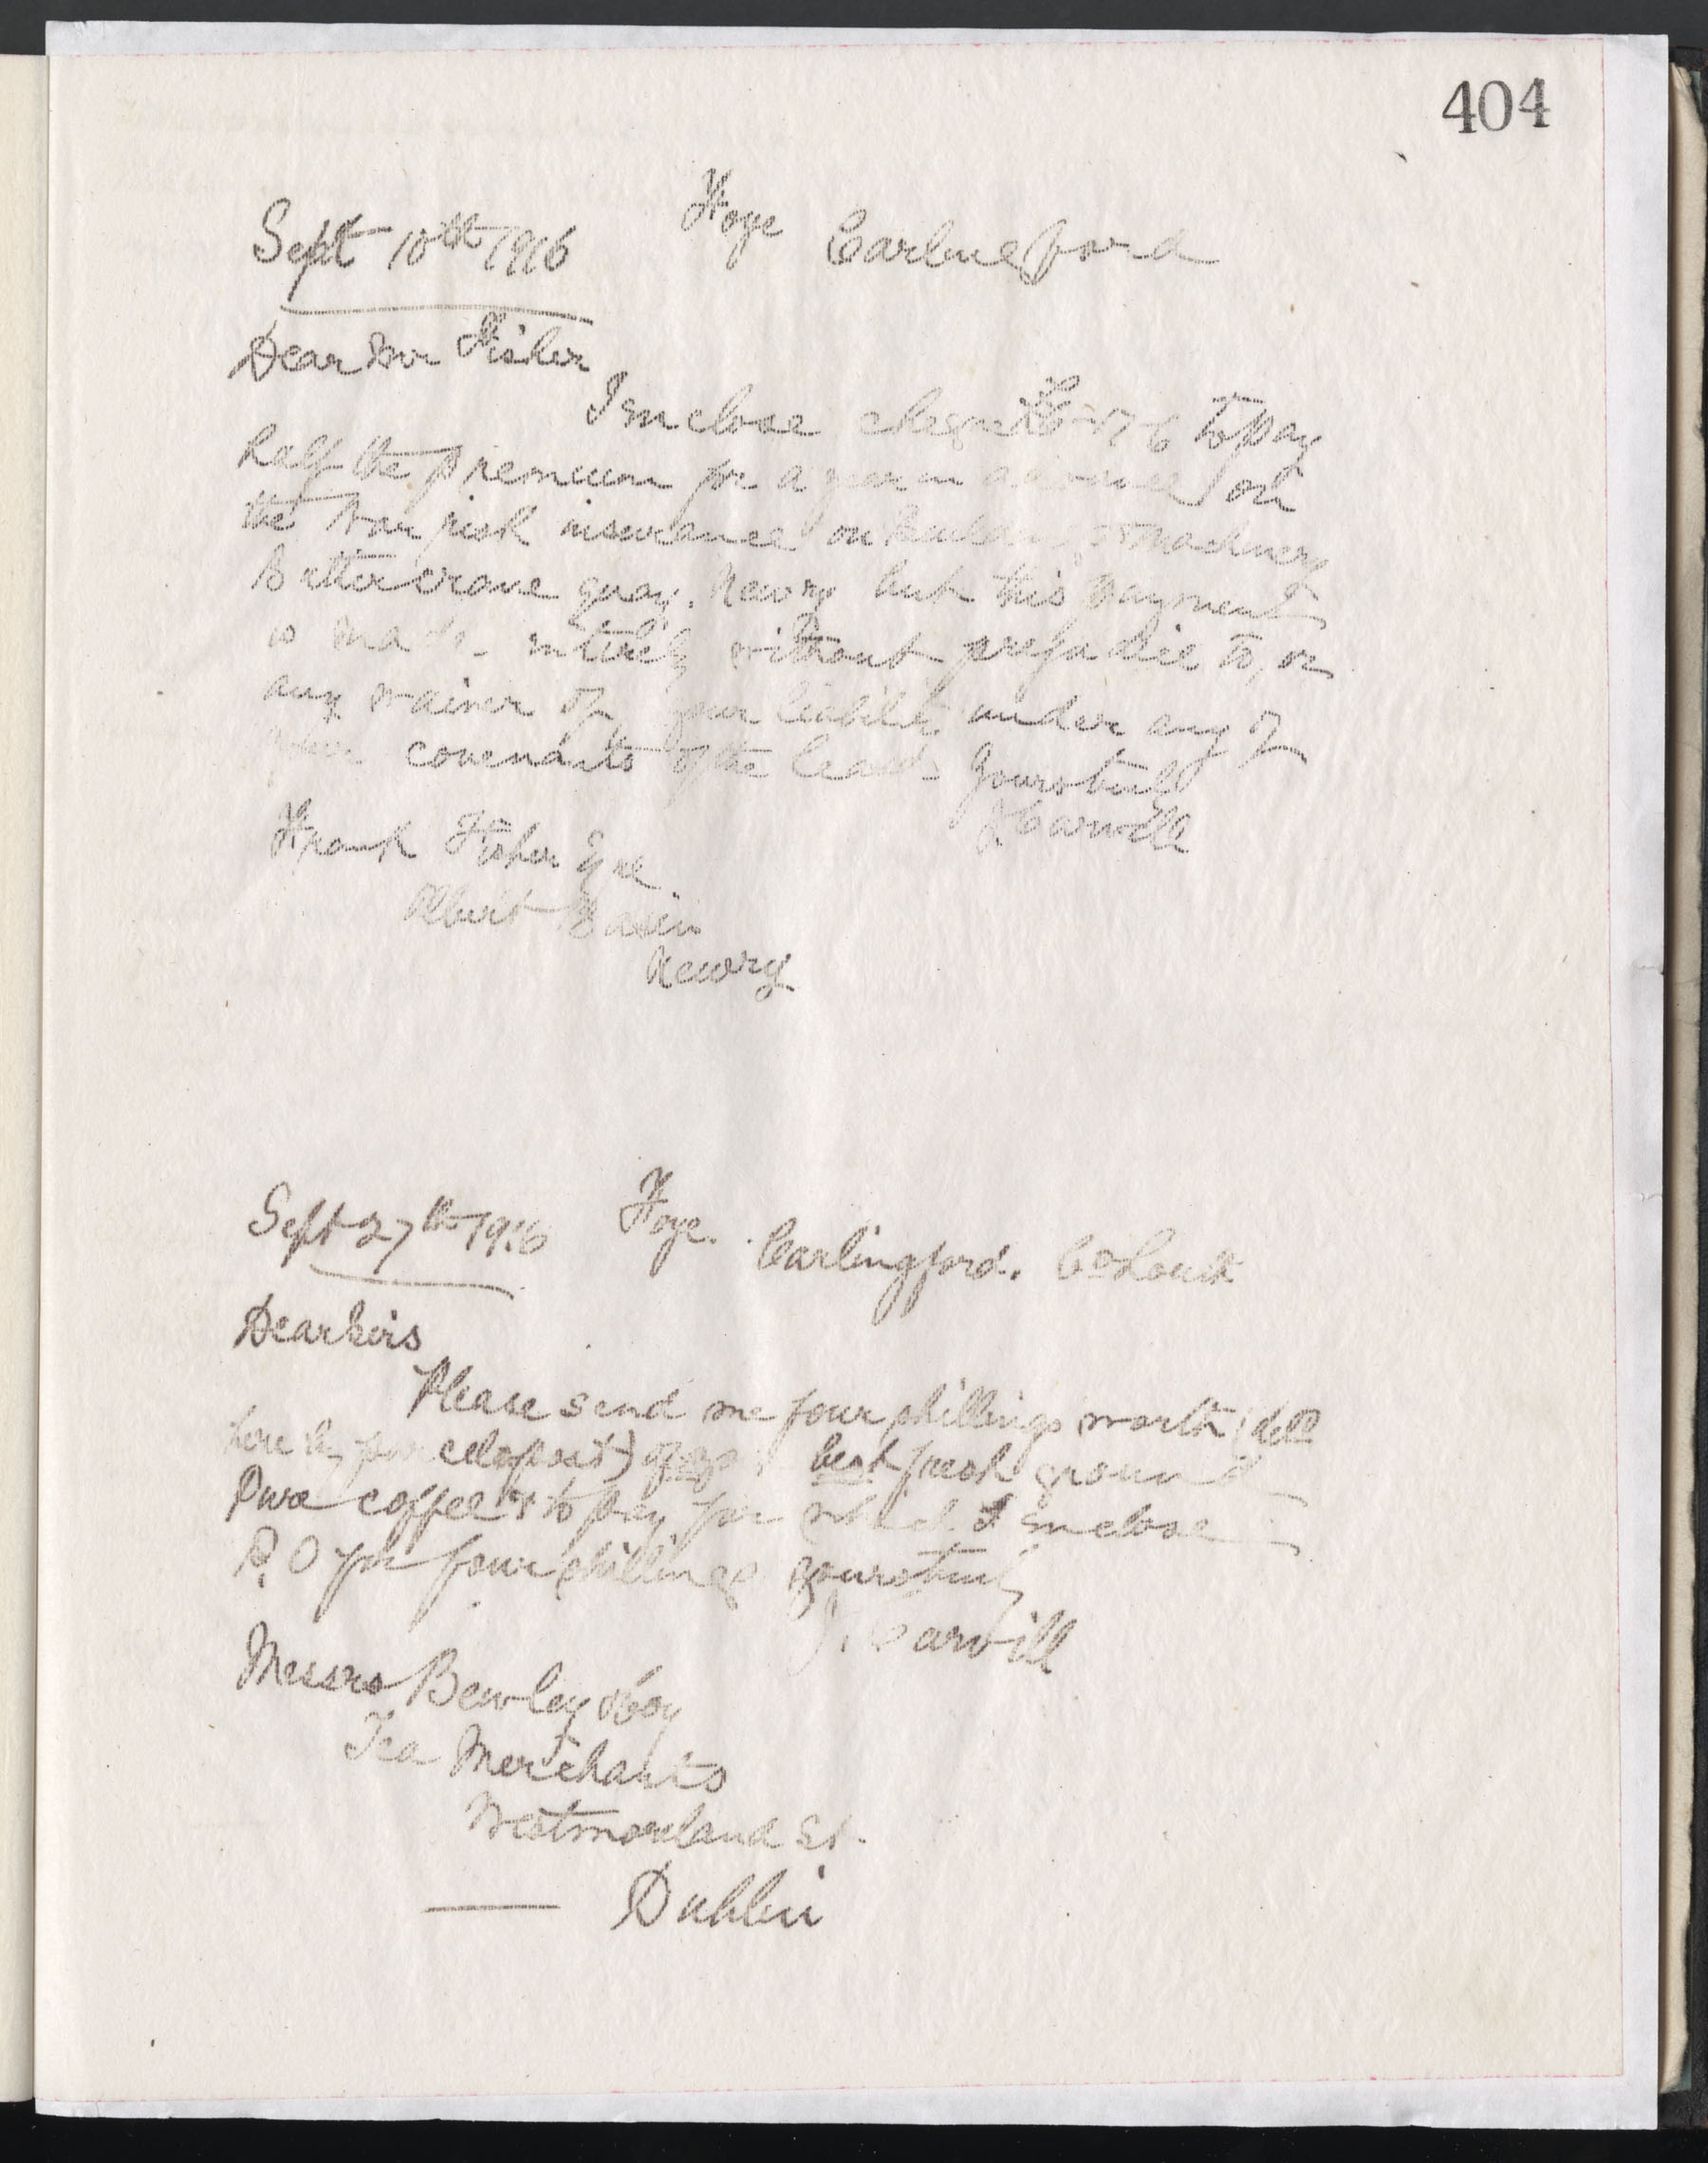 404
Sept 10th 1916 Foye Carlingford
Dear Mr Fisher
I enclose cheque £6-17-6 to pay
half the premium for a year in advance on
the War risk insurance on buildings & machinery
Buttercrane quay. Newry but this payment
is made entirely without prejudice to, or
any waiver of, your liability under any of
covenants of the lease Yours truly
J Carvill
Frank Fisher Esqre.
Albert Basin
Newry
Sept 27th 1916 Foye. Carlingford. Co Louth
Dear Sirs
Please send me four shillings worth (deld
here by post) of your best fresh ground
Pure coffee & to pay for which I enclose
P.O for four shillings yours truly
J. Carvill
Messrs Bewley & Coy
Tea Merchants
Westmoreland St.
Dublin